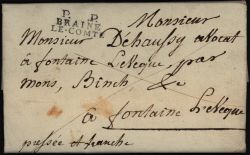 P P
BRAINE
LE-COMTE
Monsieur
Monsieur Dehaussy avocat
à fontaine Leveque, par
mons, Binch &
à fontaine Leveque
pressée et franche